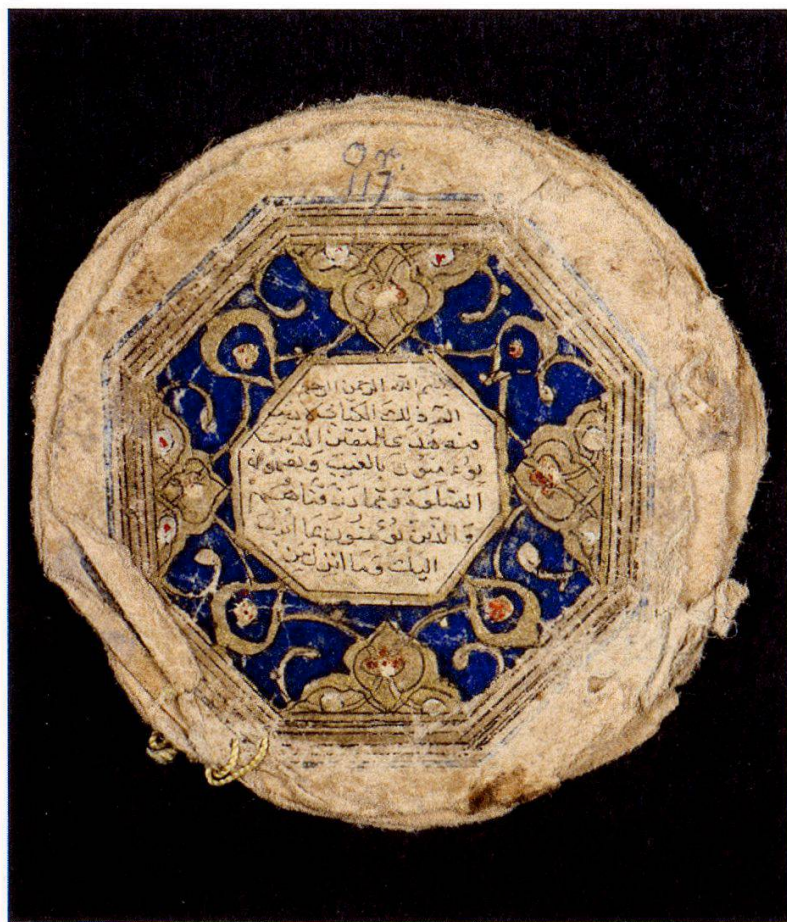 Or.
117
بسم الله الرحمن الرحيم
الم ذلك الكتاب لا ريب
فيه هدى للمتقين الذين
يؤمنون بالغيب ويقيمون
الصلوة ومما رزقناهم
والذين يؤمنون بما انزل
اليك وما انزل من